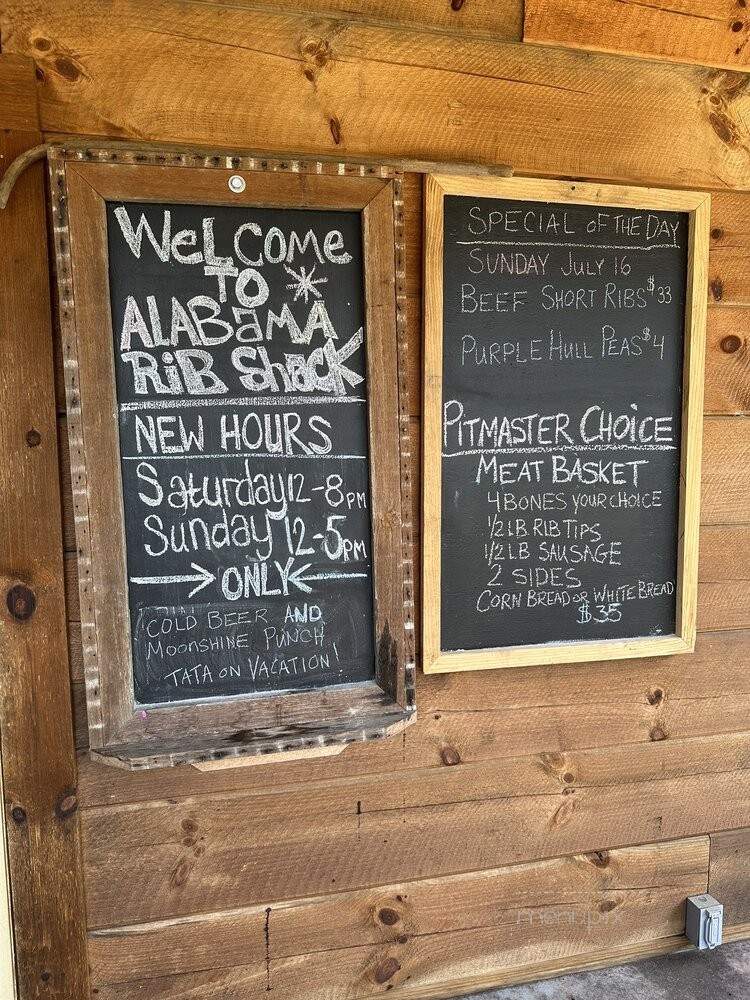 WELCOME
TO
ALABAMA
RIB Shack
NEW HOURS
Saturday 12-8PM
Sunday 12-5PM
ONLY
COLD BEER AND
MOONSHINE PUNCH
TATA ON VACATION!
SPECIAL OF THE DAY
SUNDAY JULY 16
BEEF SHORT RIBS $33
PURPLE HULL PEAS $4
PITMASTER CHOICE
MEAT BASKET
4 BONES YOUR CHOICE
1/2 LB RIB TIPS
1/2 LB SAUSAGE
2 SIDES
CORN BREAD OR WHITE BREAD
$35
menupix